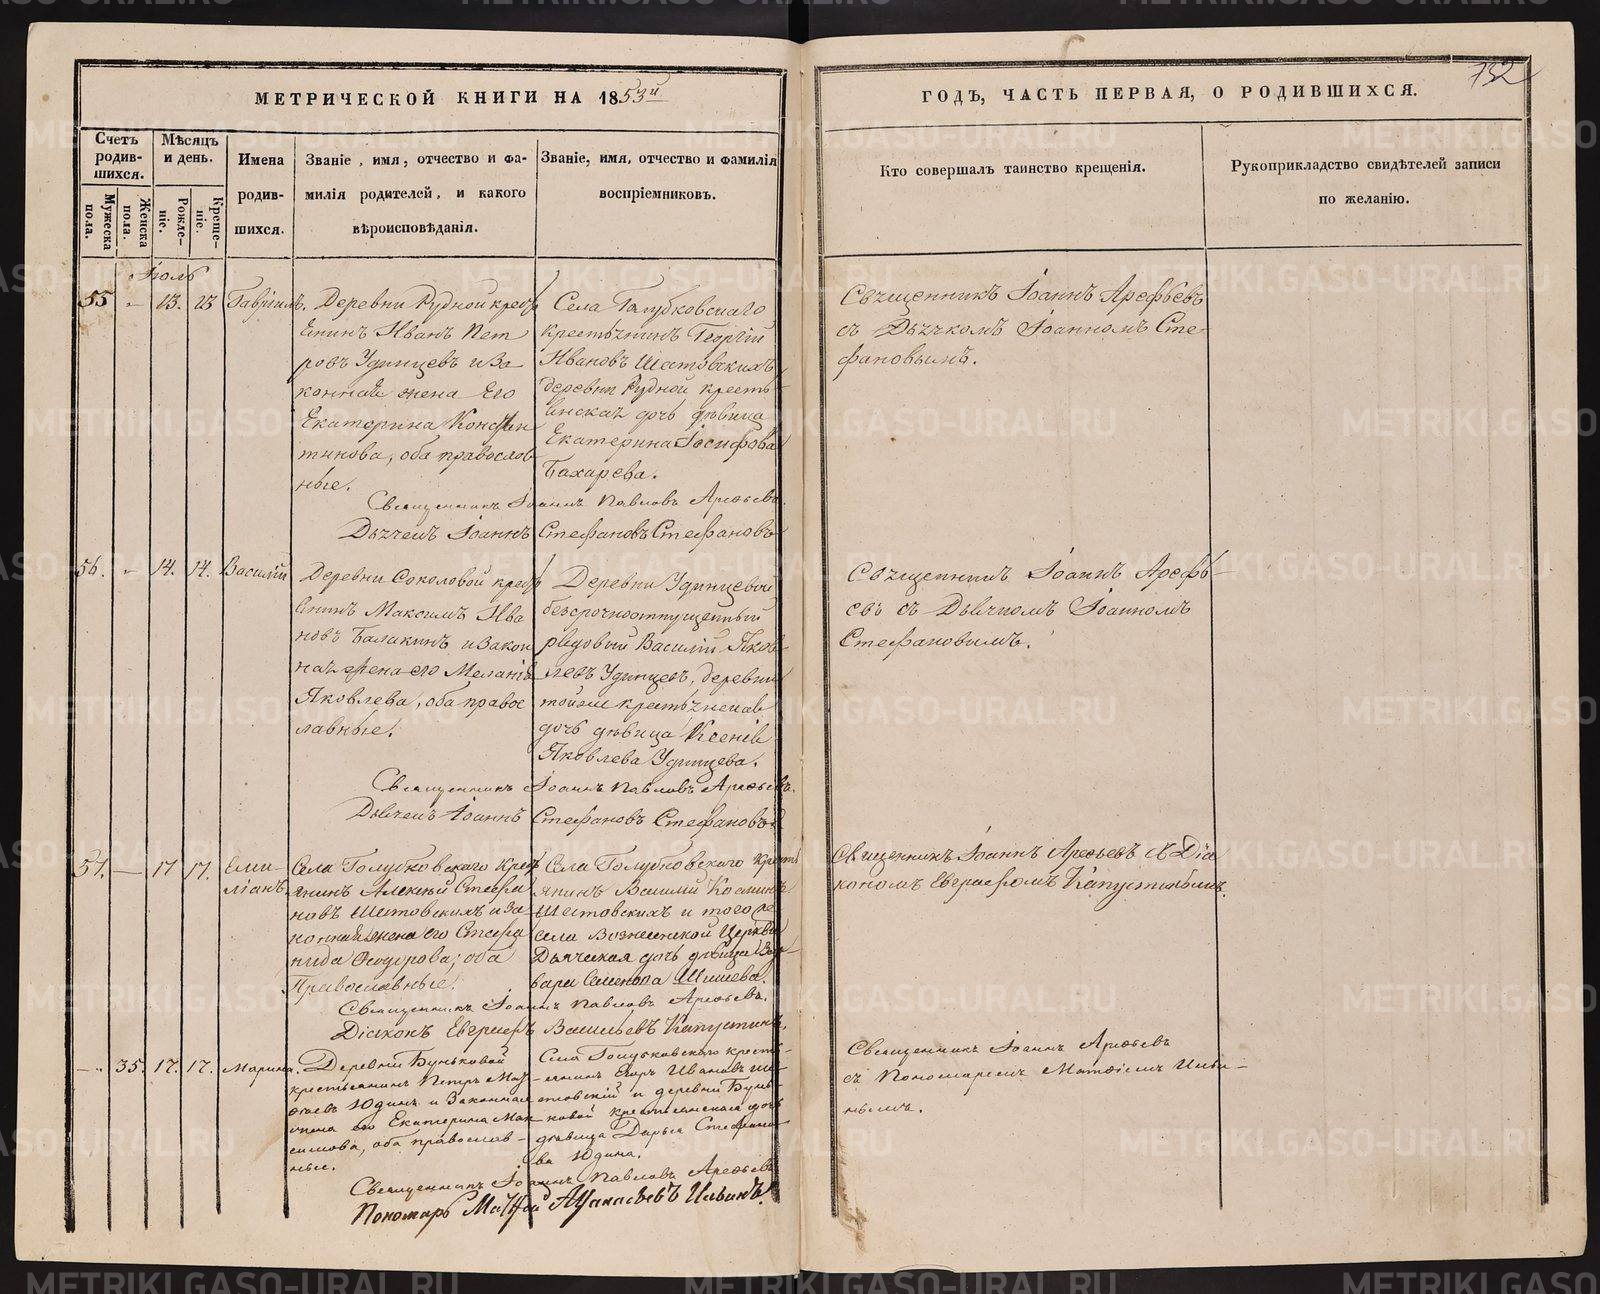 МЕТРИЧЕСКОЙ КНИГИ НА 1853й
ГОДЪ, ЧАСТЬ ПЕРВАЯ, О РОДИВШИХСЯ.
132
Счетъ родившихся.
Мужеска пола.
Женска пола.
Мѣсяцъ и день.
Рожденіе.
Крещеніе.
Имена родившихся.
Званіе, имя, отчество и фамилія родителей, и какого вѣроисповѣданія.
Званіе, имя, отчество и фамилія воспріемниковъ.
Кто совершалъ таинство крещенія.
Рукоприкладство свидѣтелей записи по желанію.
Іюль
55 - 13. 23 Гавріилъ.
Деревни Рудной кресть
янинъ Иванъ Пет
ровъ Удинцевъ и за
конная жена его
Екатерина Констан
тинова, оба православ
ные.
Села Голубковскаго
крестьянинъ Георгій
Ивановъ Шестовскихъ
деревни Рудной кресть
янская дочь дѣвица
Екатерина Іосифова
Бахарева.
Священникъ Іоаннъ Арефьевъ
съ Дьячкомъ Іоанномъ Сте-
фановымъ.
Священникъ Іоаннъ Павловъ Арефьевъ.
Дьячекъ Іоаннъ Стефановъ Стефановъ
56. - 14. 14. Василій
Деревни Соколовой кресть
янинъ Максимъ Ива
новъ Балакинъ и закон
ная жена его Меланія
Яковлева, оба правос
лавные.
Деревни Удинцевой
безсрочноотпущенный
рядовый Василій Яков-
левъ Удинцевъ, деревни
тойже крестьянская
дочь дѣвица Ксенія
Яковлева Удинцева.
Священникъ Іоаннъ Арефь-
евъ съ Дьячкомъ Іоанномъ
Стефановымъ.
Священникъ Іоаннъ Павловъ Арефьевъ.
Дьячекъ Іоаннъ Стефановъ Стефановъ
57. - 17 17. Еми-
ліанъ
Села Голубковскаго кресть
янинъ Алексѣй Стефа
новъ Шестовскихъ и за
конная жена его Стефа
нида Ѳеодорова, оба
Православные.
Села Голубковскаго кресть
янинъ Василій Козминъ
Шестовскихъ и того же
села Вознесенской Церкви
Дьяческая дочь дѣвица Вар-
вара Семенова Шишева.
Священникъ Іоаннъ Арефьевъ съ Діа
кономъ Евграфомъ Капустинымъ.
Священникъ Іоаннъ Павловъ Арефьевъ.
Діаконъ Евграфъ Васильевъ Капустинъ.
- 35. 17. 17. Марина.
Деревни Буньковой
крестьянинъ Петръ
Юдинъ и законная
жена его Екатерина Мак
симова, оба православ-
ные.
Села Голубковскаго кресть-
янинъ Егоръ Ивановъ Ше-
стовскій и деревни Бунь-
ковой крестьянская дочь
дѣвица Дарья Стефано
ва Юдина.
Священникъ Іоаннъ Арефьевъ
съ Пономаремъ Матѳіемъ Ильи-
нымъ.
Священникъ Іоаннъ Павловъ Арефьевъ
Пономарь Матѳей Аѳанасьевъ Ильинъ.
METRIKI.GASO-URAL.RU